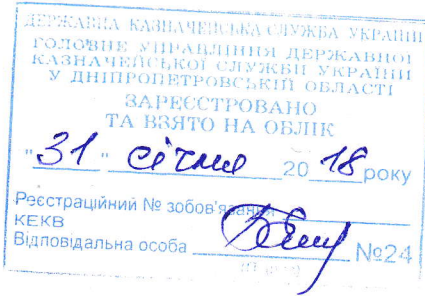 ДЕРЖАВНА КАЗНАЧЕЙСЬКА СЛУЖБА УКРАЇНИ
ГОЛОВНЕ УПРАВЛІННЯ ДЕРЖАВНОЇ
КАЗНАЧЕЙСЬКОЇ СЛУЖБИ УКРАЇНИ
У ДНІПРОПЕТРОВСЬКІЙ ОБЛАСТІ
ЗАРЕЄСТРОВАНО
ТА ВЗЯТО НА ОБЛІК
"31" січня 2018 року
Реєстраційний № зобов'язання
КЕКВ
Відповідальна особа №24